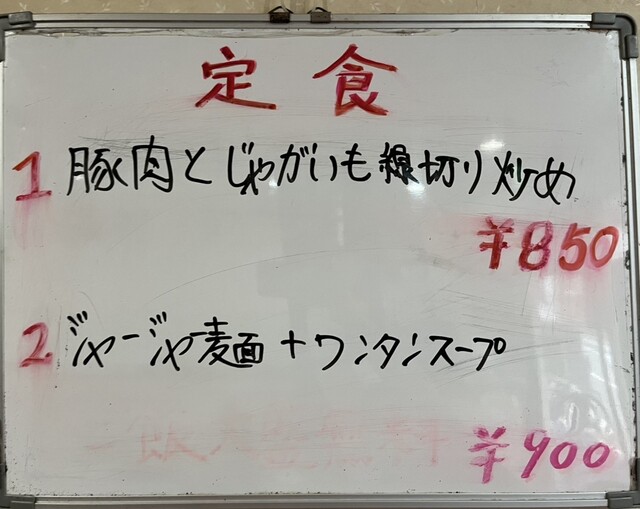 定食
1 豚肉とじゃがいも線切り炒め
¥850
2 ジャージャー麦面+ワンタンスープ
¥900